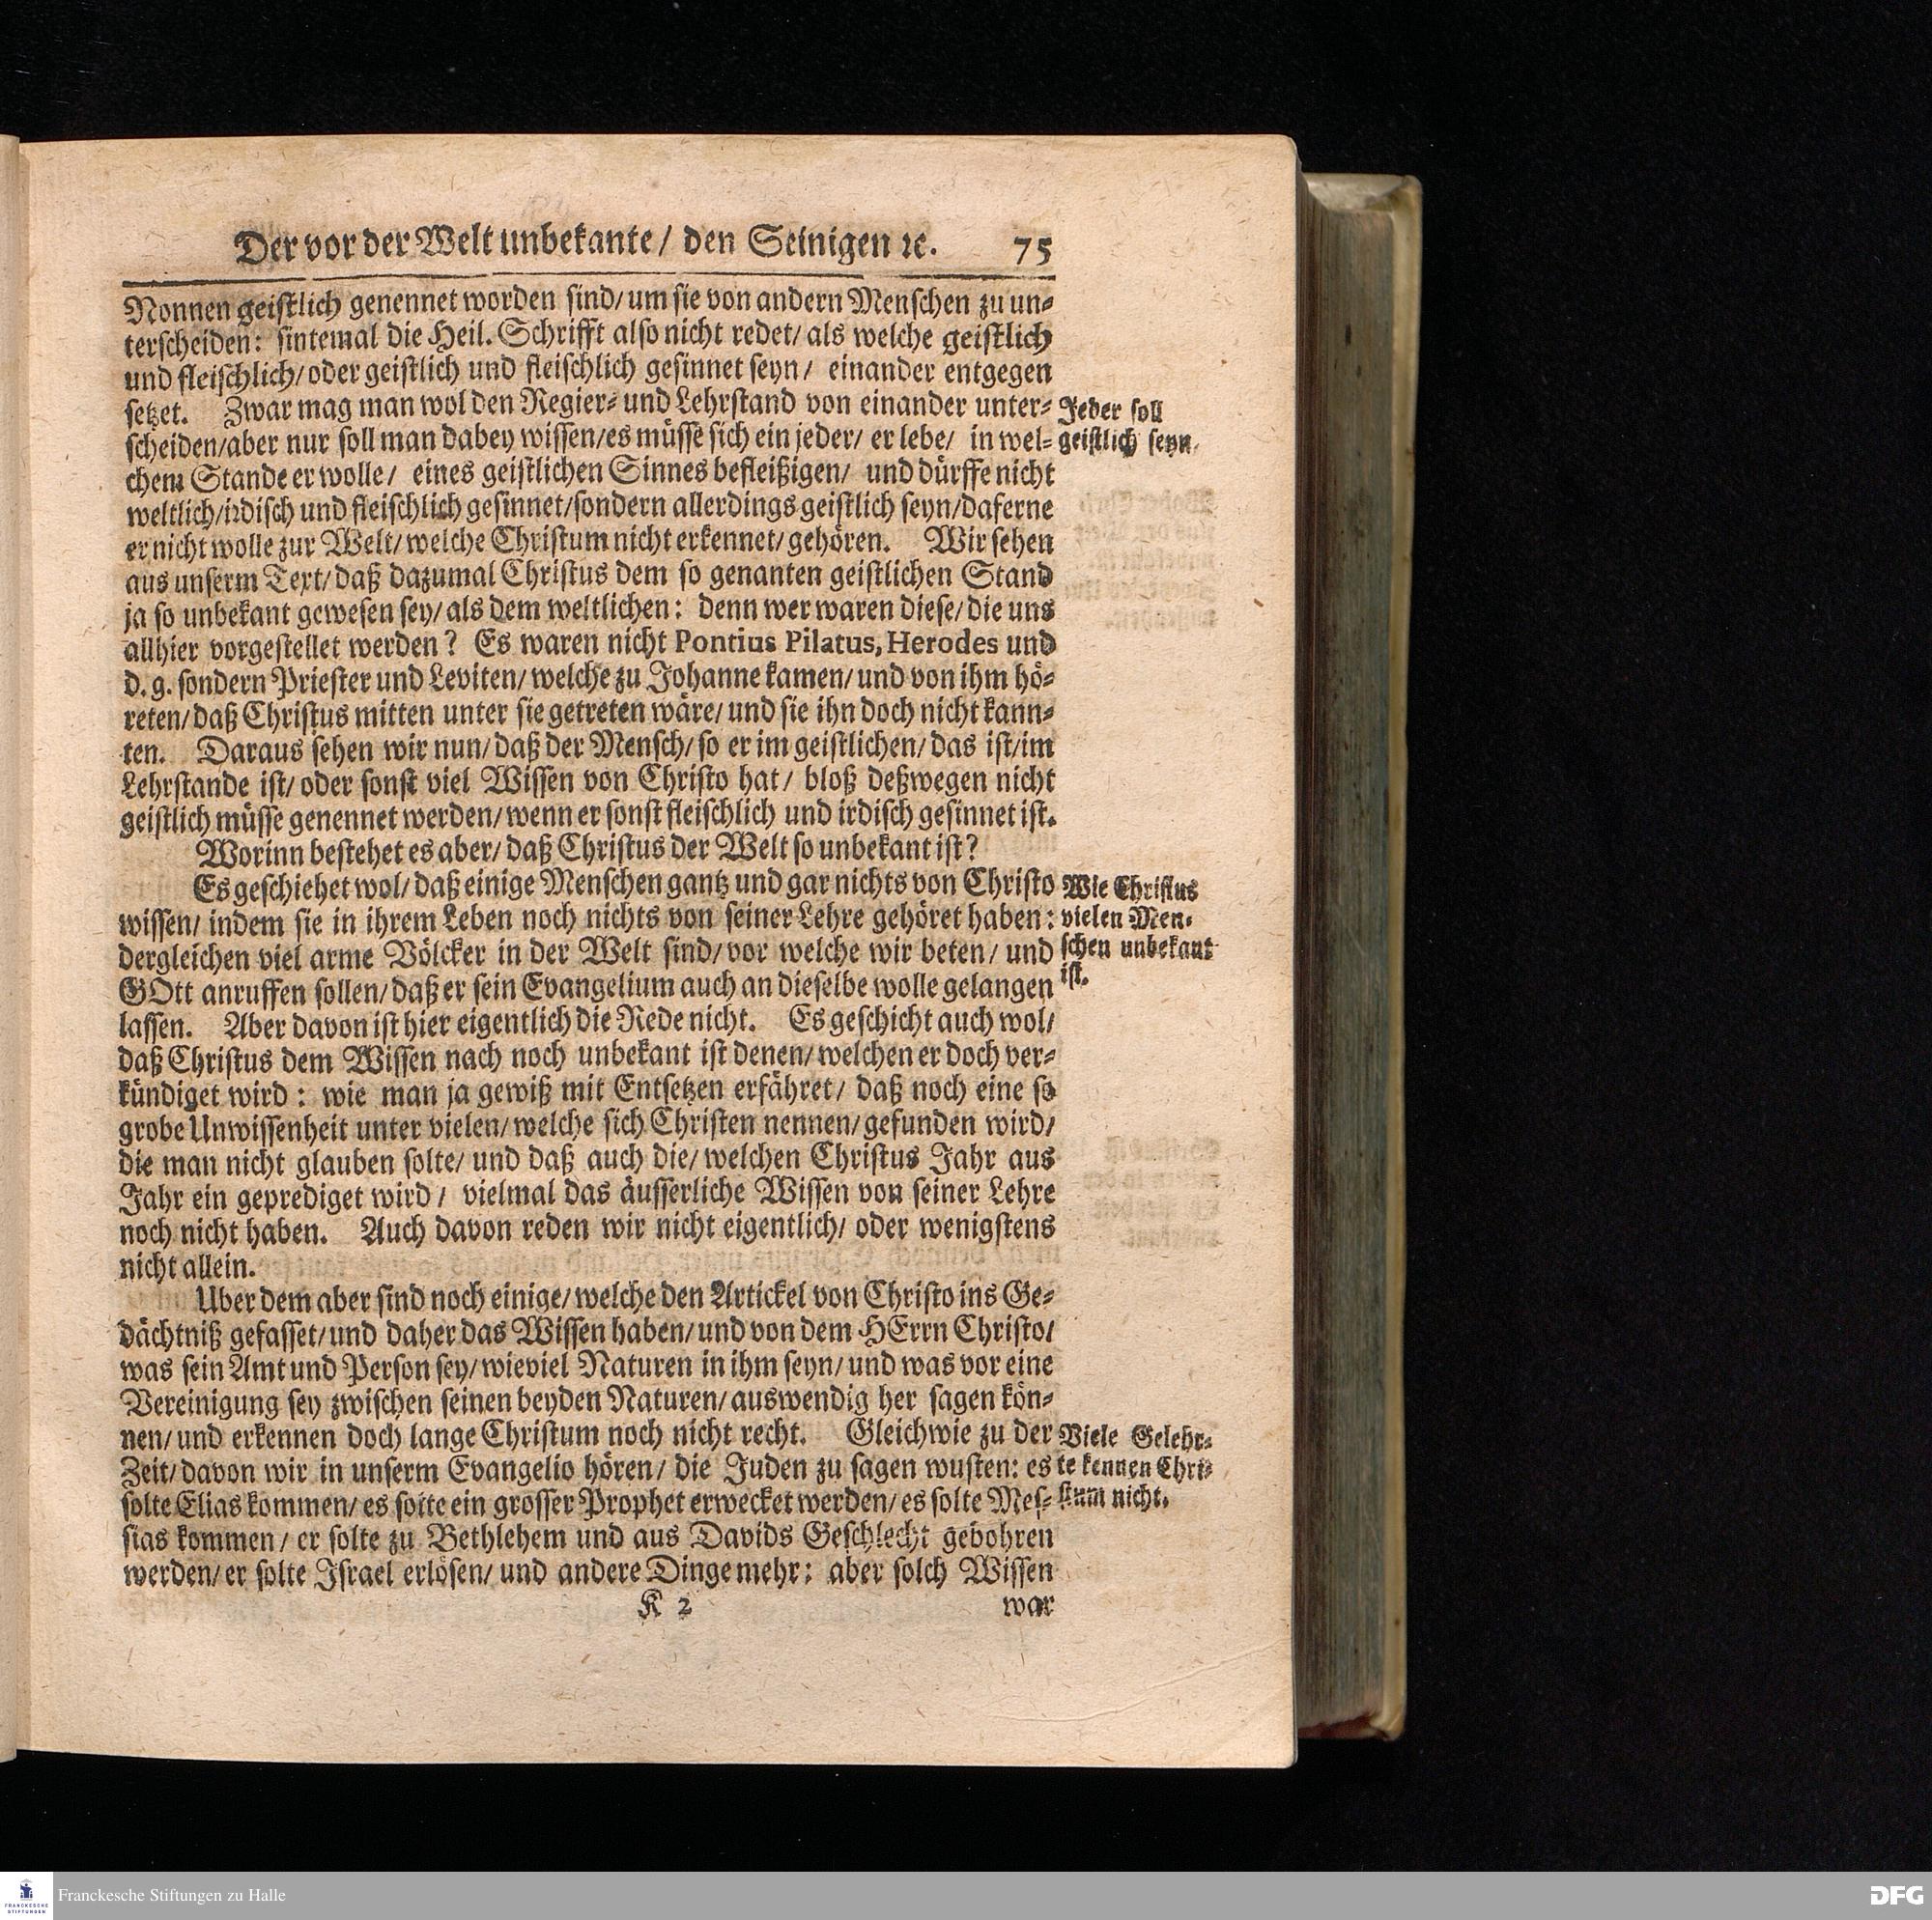 Der vor der Welt unbekante/ den Seinigen ꝛc. 75
Nonnen geistlich genennet worden sind/ um sie von andern Menschen zu un-
terscheiden: sintemal die Heil. Schrifft also nicht redet/ als welche geistlich
und fleischlich/ oder geistlich und fleischlich gesinnet seyn/ einander entgegen
setzet. Zwar mag man wol den Regier- und Lehrstand von einander unter-
scheiden/ aber nur soll man dabey wissen/ es müsse sich ein jeder/ er lebe/ in wel-
chem Stande er wolle/ eines geistlichen Sinnes befleißigen/ und dürffe nicht
weltlich/ irdisch und fleischlich gesinnet/ sondern allerdings geistlich seyn/ daferne
er nicht wolle zur Welt/ welche Christum nicht erkennet/ gehören. Wir sehen
aus unserm Text/ daß dazumal Christus dem so genanten geistlichen Stand
ja so unbekant gewesen sey/ als dem weltlichen: denn wer waren diese/ die uns
allhier vorgestellet werden? Es waren nicht Pontius Pilatus, Herodes und
d. g. sondern Priester und Leviten/ welche zu Johanne kamen/ und von ihm hö-
reten/ daß Christus mitten unter sie getreten wäre/ und sie ihn doch nicht kann-
ten. Daraus sehen wir nun/ daß der Mensch/ so er im geistlichen/ das ist/ im
Lehrstande ist/ oder sonst viel Wissen von Christo hat/ bloß deßwegen nicht
geistlich müsse genennet werden/ wenn er sonst fleischlich und irdisch gesinnet ist.
Jeder soll
geistlich seyn.
Worinn bestehet es aber/ daß Christus der Welt so unbekant ist?
Es geschiehet wol/ daß einige Menschen gantz und gar nichts von Christo
wissen/ indem sie in ihrem Leben noch nichts von seiner Lehre gehöret haben:
dergleichen viel arme Völcker in der Welt sind/ vor welche wir beten/ und
GOtt anruffen sollen/ daß er sein Evangelium auch an dieselbe wolle gelangen
lassen. Aber davon ist hier eigentlich die Rede nicht. Es geschicht auch wol/
daß Christus dem Wissen nach noch unbekant ist denen/ welchen er doch ver-
kündiget wird: wie man ja gewiß mit Entsetzen erfähret/ daß noch eine so
grobe Unwissenheit unter vielen/ welche sich Christen nennen/ gefunden wird/
die man nicht glauben solte/ und daß auch die/ welchen Christus Jahr aus
Jahr ein geprediget wird/ vielmal das äusserliche Wissen von seiner Lehre
noch nicht haben. Auch davon reden wir nicht eigentlich/ oder wenigstens
nicht allein.
Wie Christus
vielen Men-
schen unbekant
ist.
Uber dem aber sind noch einige/ welche den Artickel von Christo ins Ge-
dächtniß gefasset/ und daher das Wissen haben/ und von dem HErrn Christo/
was sein Amt und Person sey/ wieviel Naturen in ihm seyn/ und was vor eine
Vereinigung sey zwischen seinen beyden Naturen/ auswendig her sagen kön-
nen/ und erkennen doch lange Christum noch nicht recht. Gleichwie zu der
Zeit/ davon wir in unserm Evangelio hören/ die Juden zu sagen wusten: es
solte Elias kommen/ es solte ein grosser Prophet erwecket werden/ es solte Mes-
sias kommen/ er solte zu Bethlehem und aus Davids Geschlecht gebohren
werden/ er solte Israel erlösen/ und andere Dinge mehr: aber solch Wissen
Viele Gelehr-
te kennen Chri-
stum nicht.
K 2 war
Franckesche Stiftungen zu Halle
FRANCKESCHE
STIFTUNGEN
DFG